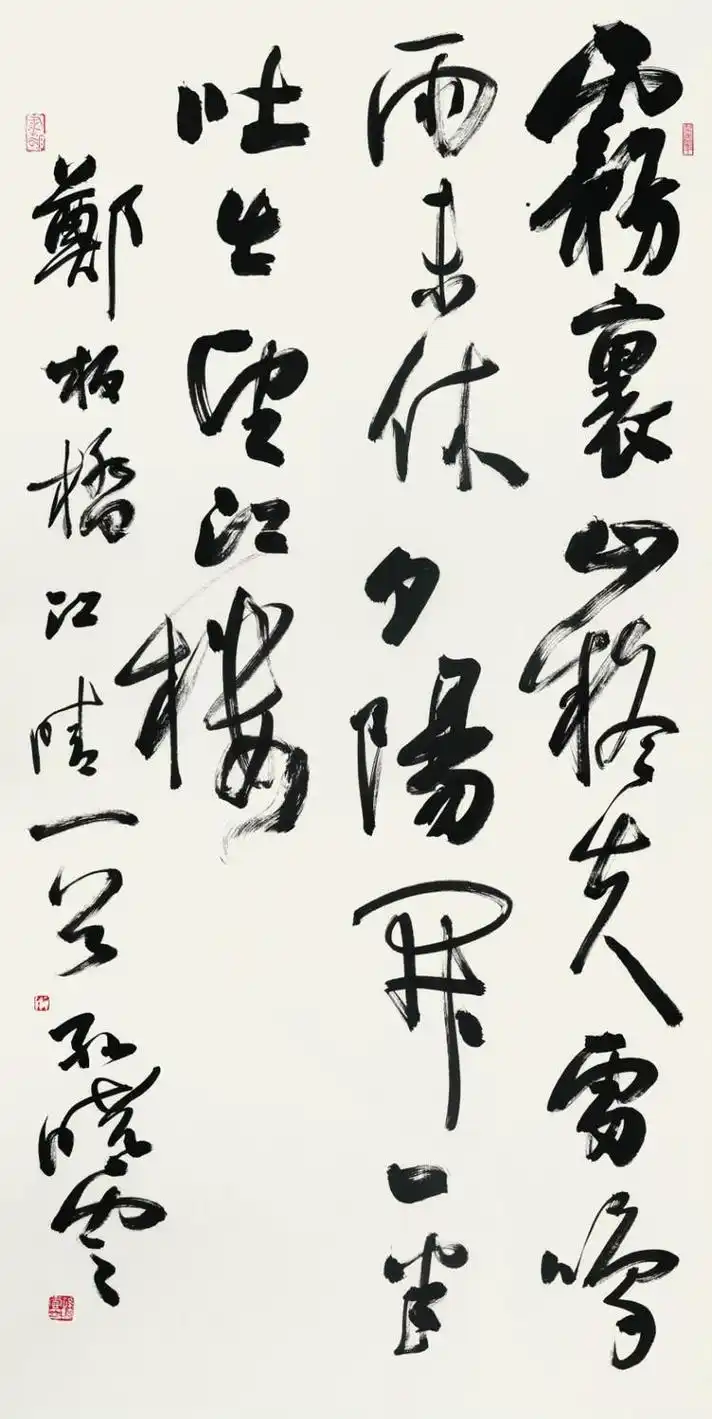 霧裏山疑失雷鳴
雨未休夕陽開一半
吐出望江樓
鄭板橋江晴一首 孔曉雲